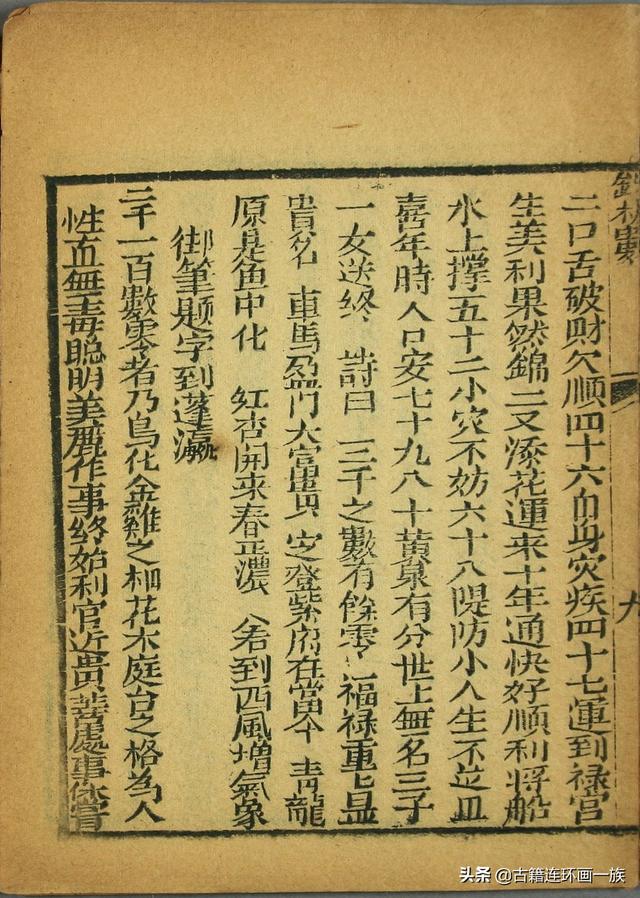 鐵板數
九
二口舌破財欠順四十六自身灾疾四十七運到禄宫
生美利果然錦二又添花運来十年通快好順利將船
水上撑五十二小灾不妨六十八隄防小人生不並
喜年時人口安七十九八十黄泉有分世上無名三子
一女送终 詩曰 三千之數有餘零 福禄重上显
貴名 車馬盈門大富貴 定登紫府在當今 青龍
原是鱼中化 红杏開来春正濃 若到西風增氣象
御筆题字到蓬瀛
二千一百數零者乃鳥化金雞之格花木庭台之格為人
性直無毒聪明美麗作事终始利官近貴善處事
头条 @古籍连环画一族